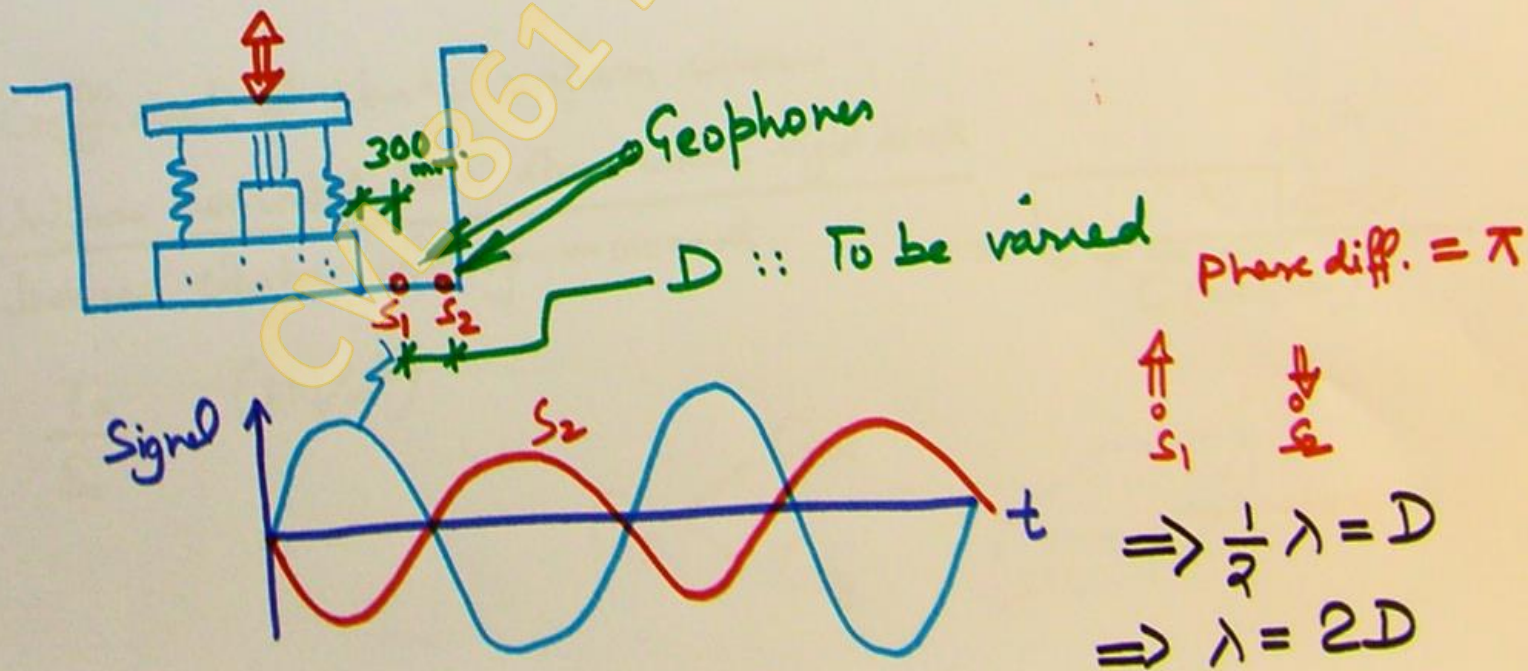 CVL 861
300
mm.
Geophones
D :: To be varied
Phase diff. = π
S1 S2
S1 S2
Signal
S2
t
⇒ 1/2 λ = D
⇒ λ = 2D